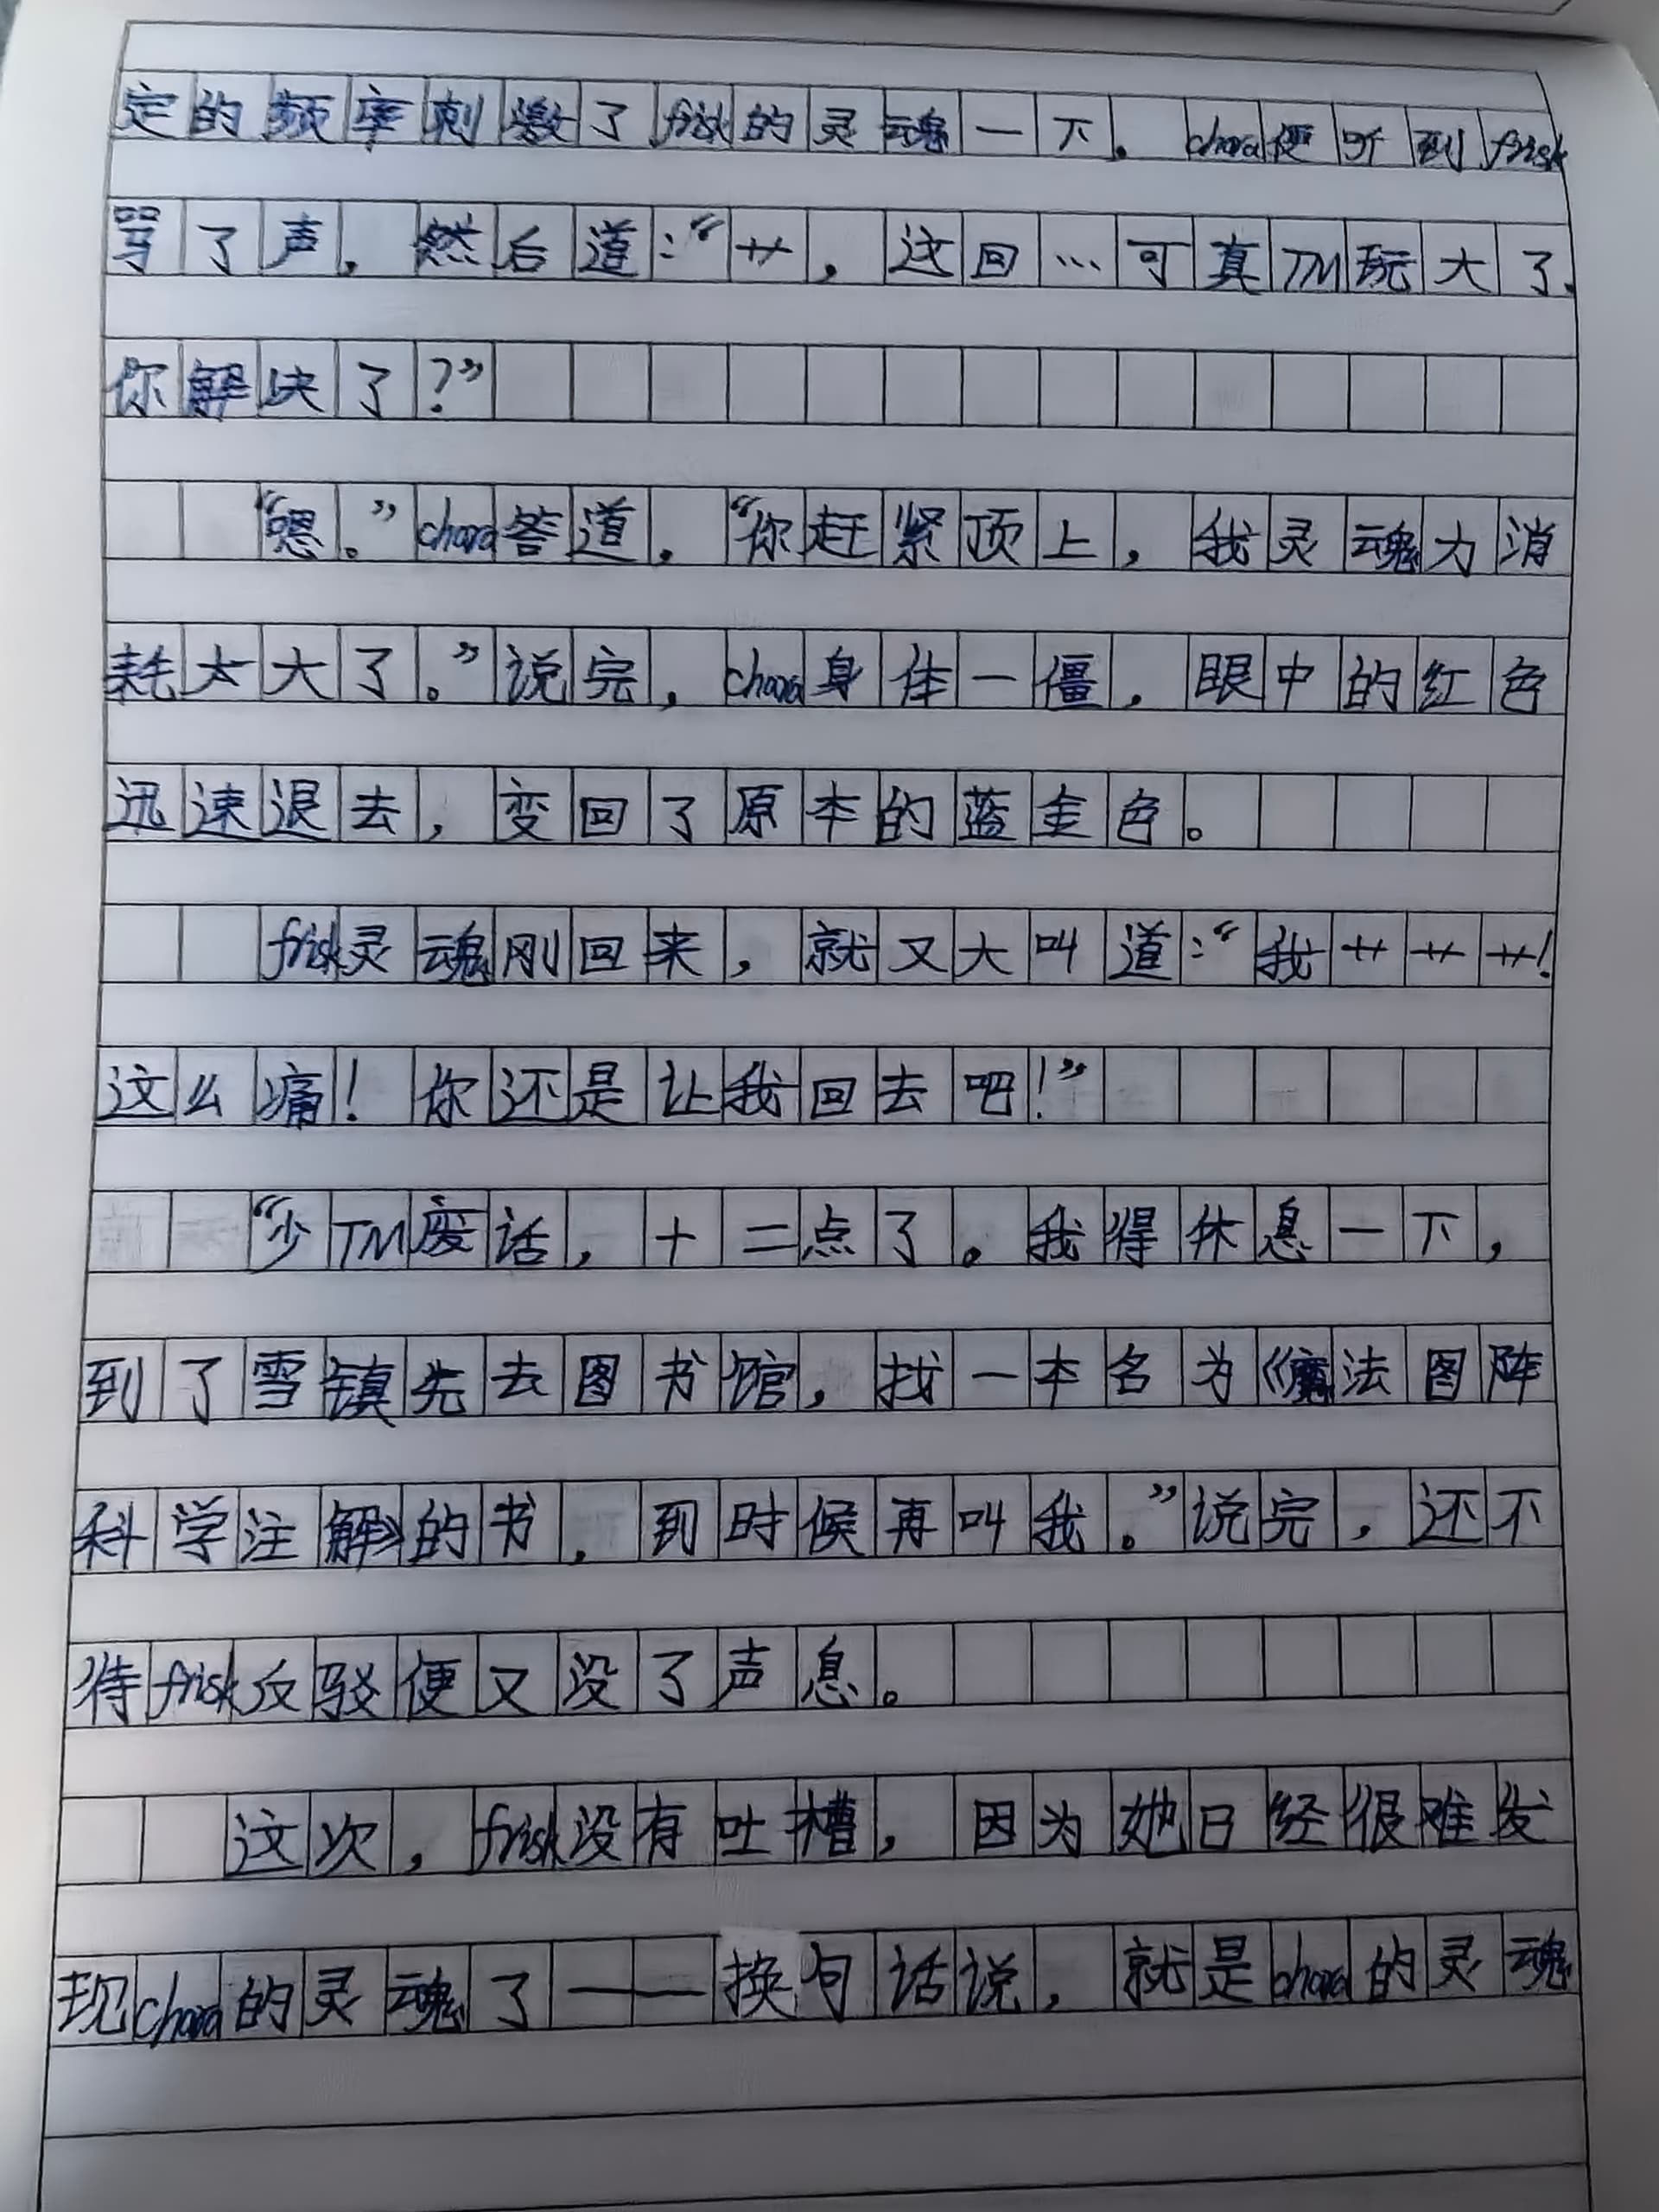 定的频率刺激了frisk的灵魂一下。chara便听到frisk
骂了声，然后道：“艹，这回…可真TM玩大了，
你解决了？”
“嗯。”chara答道，“你赶紧顶上，我灵魂力消
耗太大了。”说完，chara身体一僵，眼中的红色
迅速退去，变回了原本的蓝金色。
frisk灵魂刚回来，就又大叫道：“我艹艹艹！
这么痛！你还是让我回去吧！”
“少TM废话，十二点了。我得休息一下，
到了雪镇先去图书馆，找一本名为《魔法图阵
科学注解》的书，到时候再叫我。”说完，还不
待frisk反驳便又没了声息。
这次，frisk没有吐槽，因为她已经很难发
现chara的灵魂了——换句话说，就是chara的灵魂